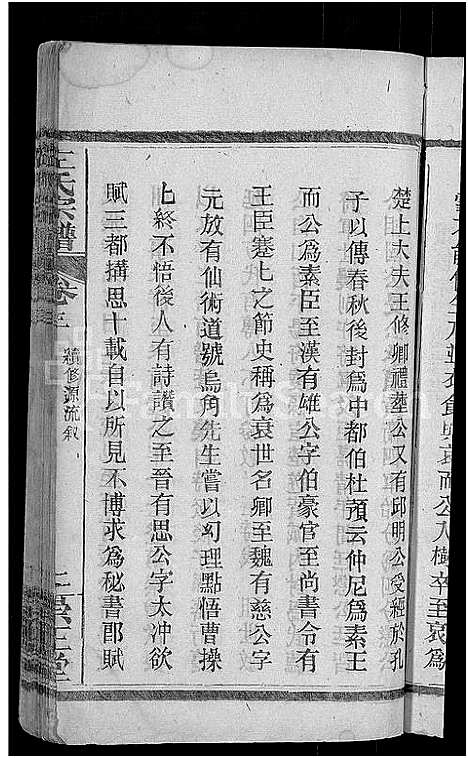 而公入樹卒至哀爲
楚上大夫王修卿禮葬公又有邱明公受經於孔
子以傳春秋後封爲中都伯杜預云仲尼爲素王
而公爲素臣至漢有雄公字伯豪官至尚書令有
王臣蹇匕之節史稱爲哀世名卿至魏有慈公字
元放有仙術道號烏角先生嘗以幻理點悟曹操
匕終不悟後人有詩讚之至晉有思公字太冲欲
賦三都搆思十載自以所見不博求爲秘書郎賦
氏宗譜
卷三
續修源流叙